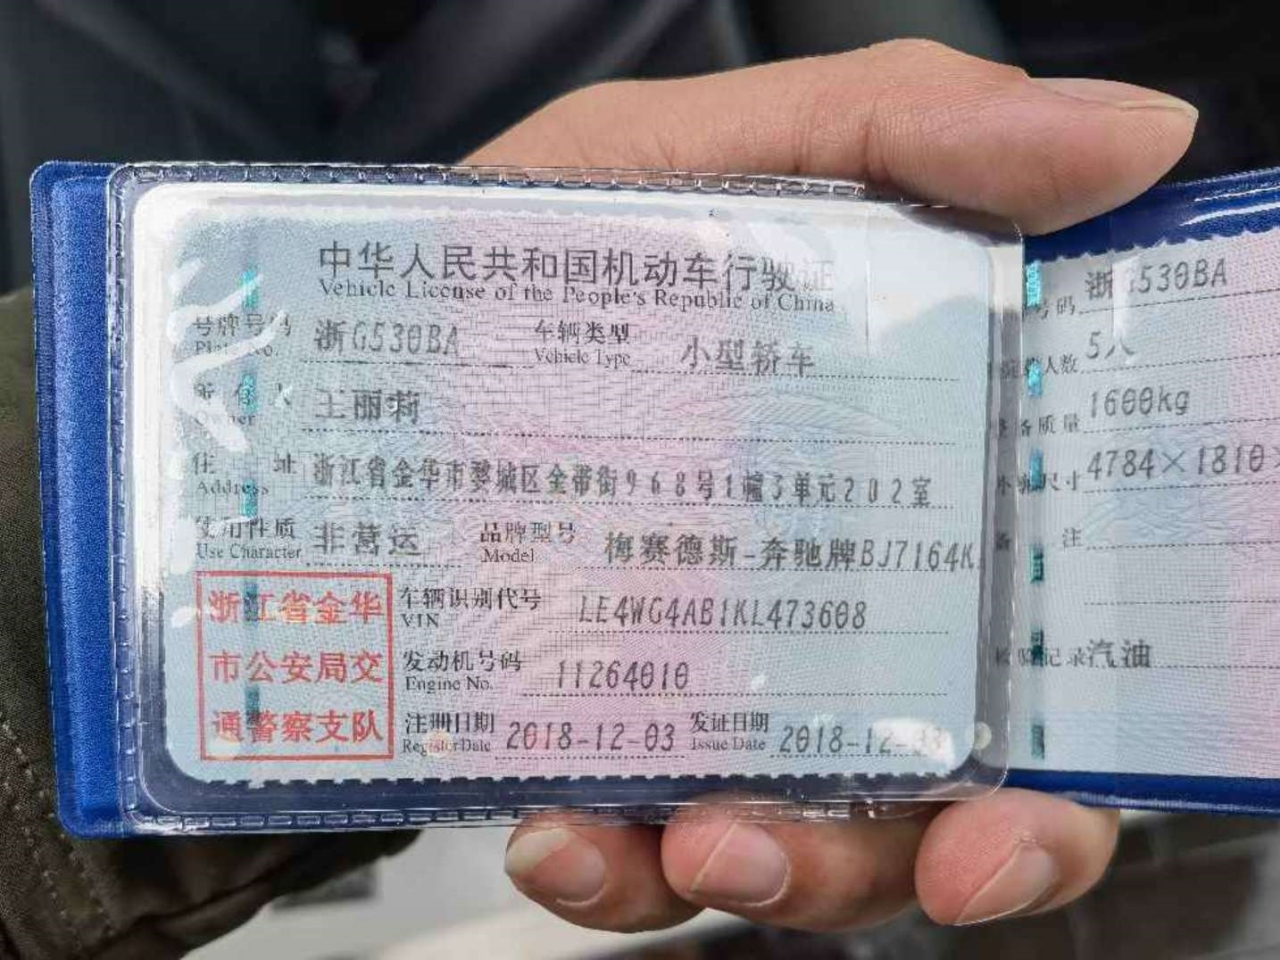 中华人民共和国机动车行驶证
Vehicle License of the People's Republic of China
号牌号码 浙G530BA 车辆类型 小型轿车
Plate No. Vehicle Type
所有人 王丽莉
Owner
住址 浙江省金华市婺城区金带街968号1幢3单元202室
Address
使用性质 非营运 品牌型号 梅赛德斯-奔驰牌BJ7164K
Use Character Model
浙江省金华
市公安局交
通警察支队
车辆识别代号 LE4WG4AB1KL473608
VIN
发动机号码 11264010
Engine No.
注册日期 2018-12-03 发证日期 2018-12-03
Register Date Issue Date
号码 浙G530BA
人数 5人
质量 1600kg
尺寸 4784×1810×
注
记录 汽油